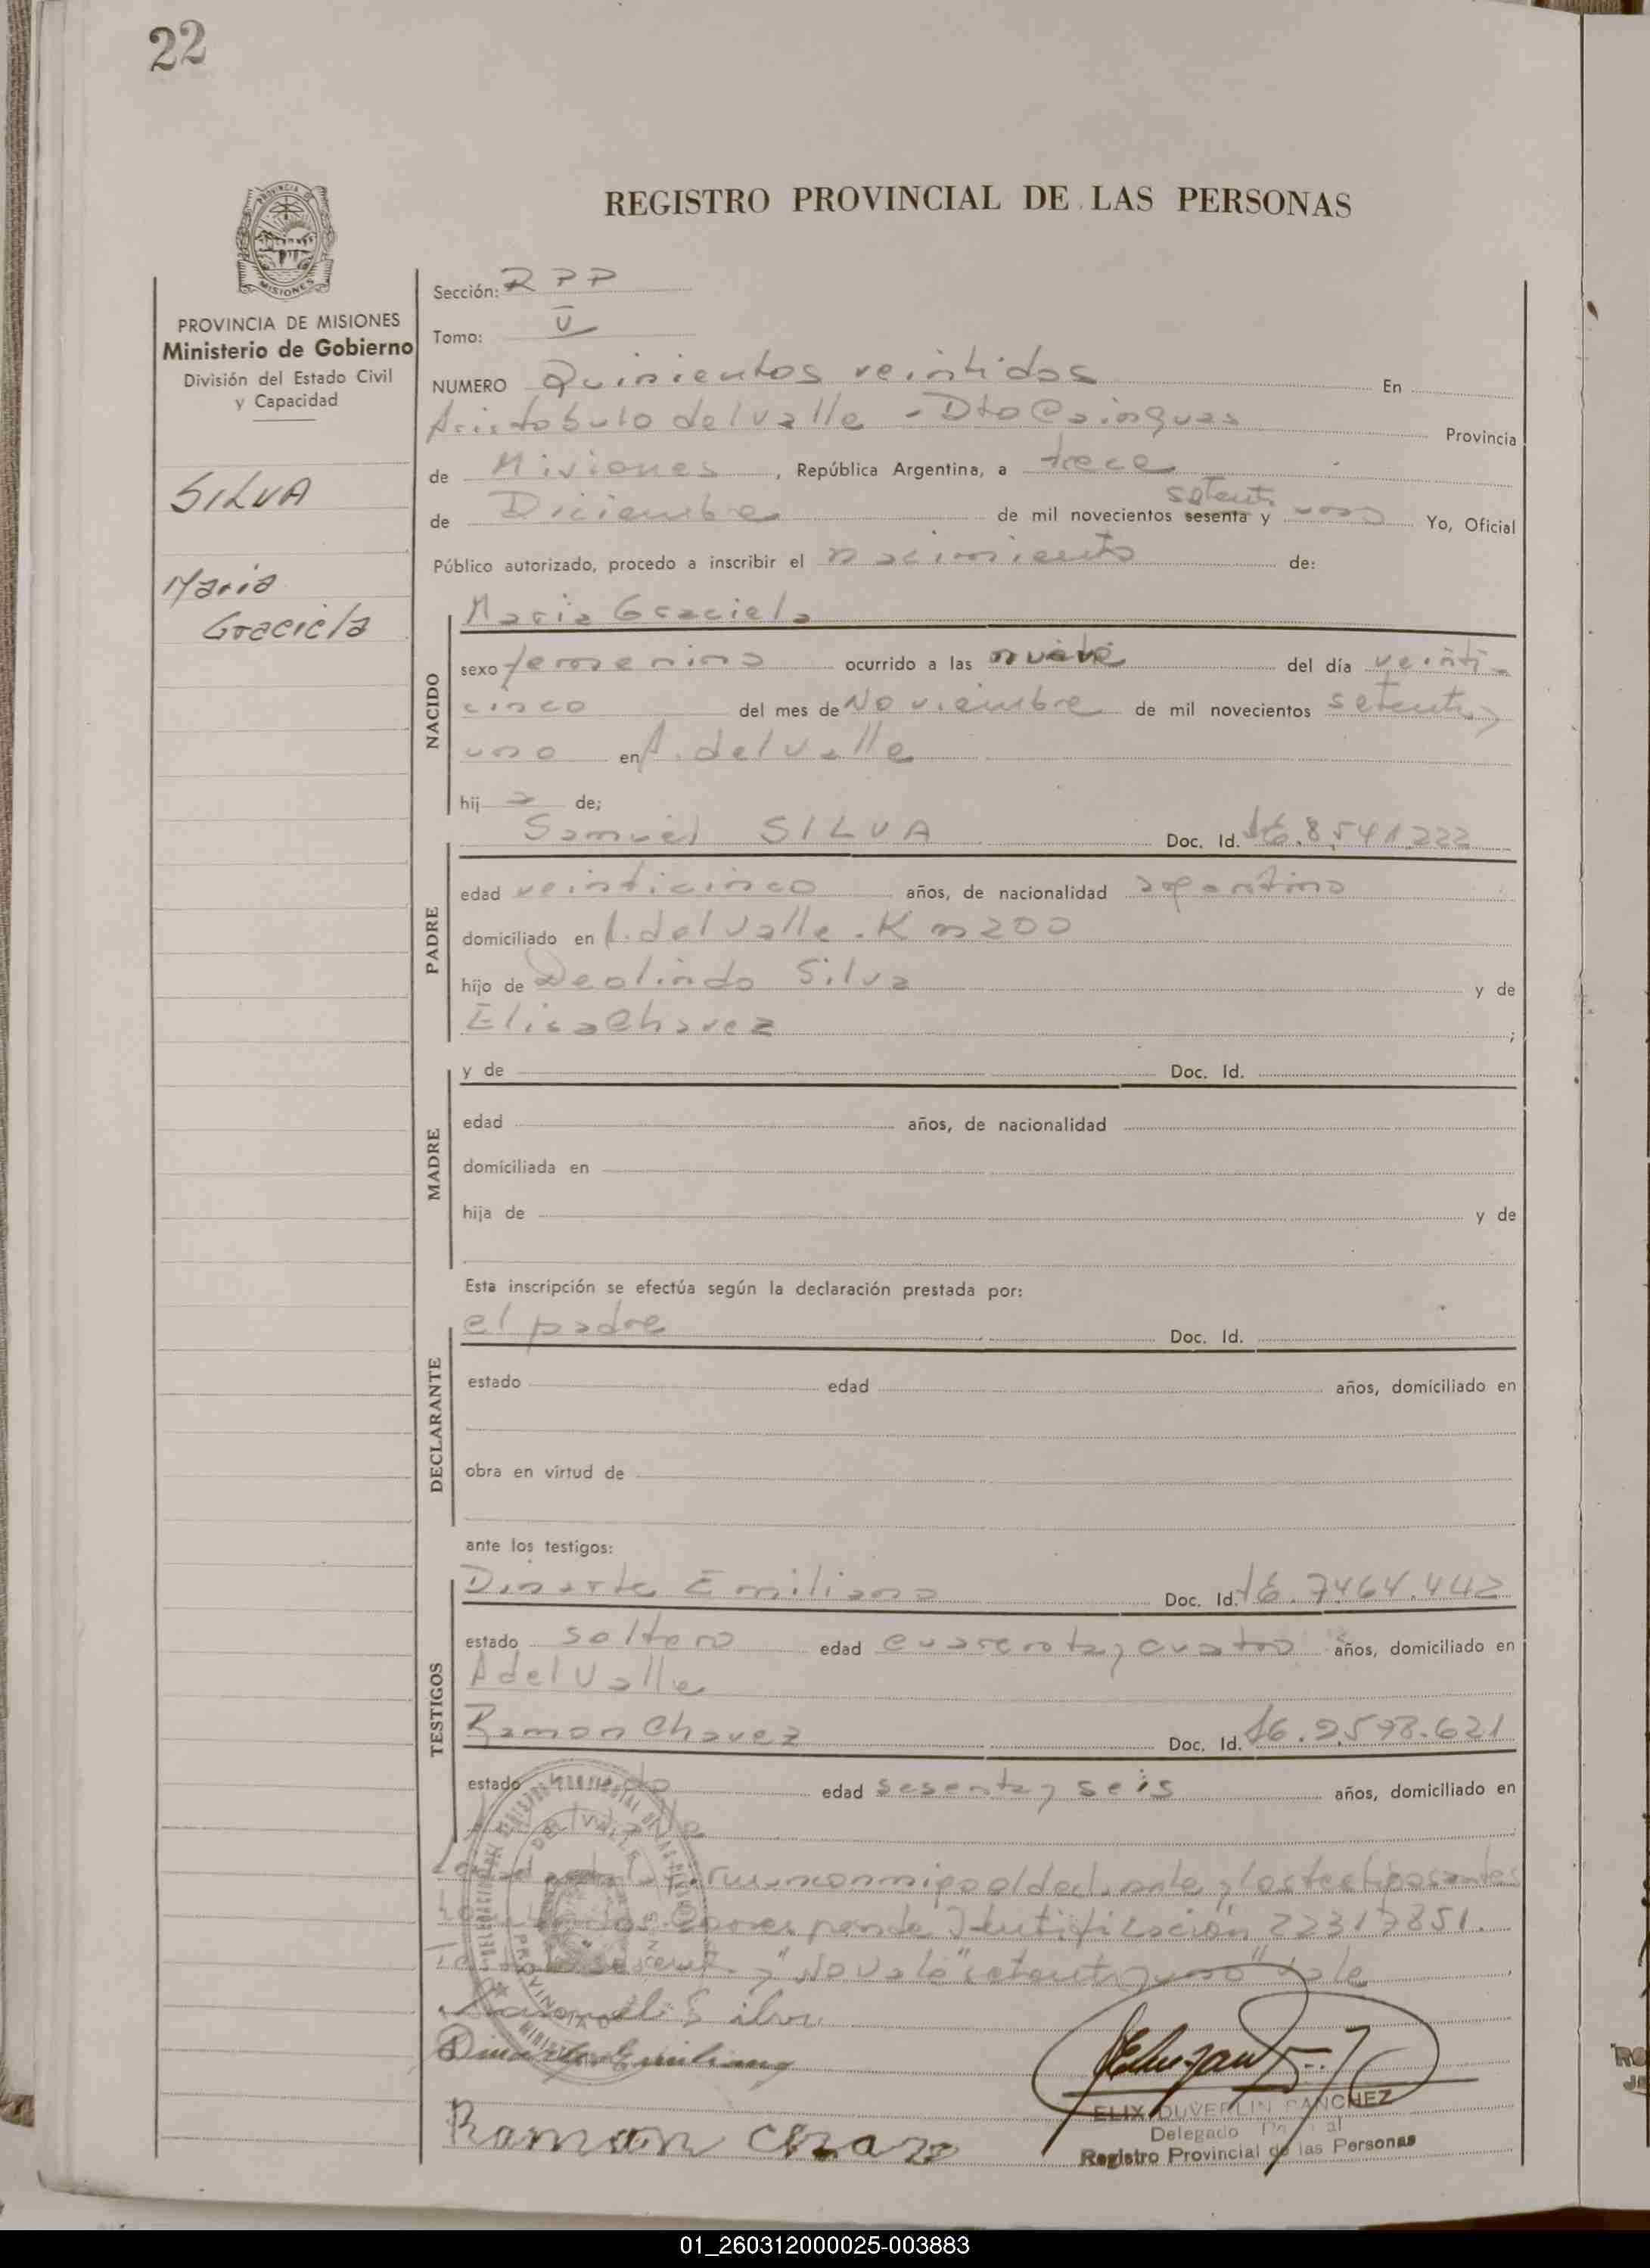 22
REGISTRO PROVINCIAL DE LAS PERSONAS
PROVINCIA DE MISIONES
Ministerio de Gobierno
División del Estado Civil
y Capacidad
SILVA
Maria
Graciela
Sección: R P P
Tomo: V
NUMERO Quinientos veintidos En
Aristobulo del valle - Dto Cainguas Provincia
de Misiones, República Argentina, a trece
setenta
de Diciembre de mil novecientos sesenta y uno Yo, Oficial
Público autorizado, procedo a inscribir el nacimiento de:
NACIDO
Maria Graciela
sexo femenino ocurrido a las nueve del día veinti-
cinco del mes de Noviembre de mil novecientos setenta y
uno en A. del Valle
hij a de;
PADRE
Samuel SILVA Doc. Id. 16.8.541.222
edad veinticinco años, de nacionalidad argentino
domiciliado en A. del Valle. Km 200
hijo de Deolindo Silva y de
Elisa Chavez ;
MADRE
y de Doc. Id.
edad años, de nacionalidad
domiciliada en
hija de y de
Esta inscripción se efectúa según la declaración prestada por:
DECLARANTE
el padre Doc. Id.
estado edad años, domiciliado en
obra en virtud de
ante los testigos:
TESTIGOS
Dinarte Emiliano Doc. Id. 16.7464.442
estado soltero edad cuarenta y cuatro años, domiciliado en
A del Valle
Ramon Chavez Doc. Id. 16.2.578.621
estado edad sesenta y seis años, domiciliado en
Valle
firman conmigo el declarante y los testigos antes
Corresponde Identificación 22317851.
"No vale" setenta y uno" vale
Samuel Silva
Dinarte Emiliano
Ramon Chavez
ELIX DUVERLIN SANCHEZ
Delegado
Registro Provincial de las Personas
01_260312000025-003883